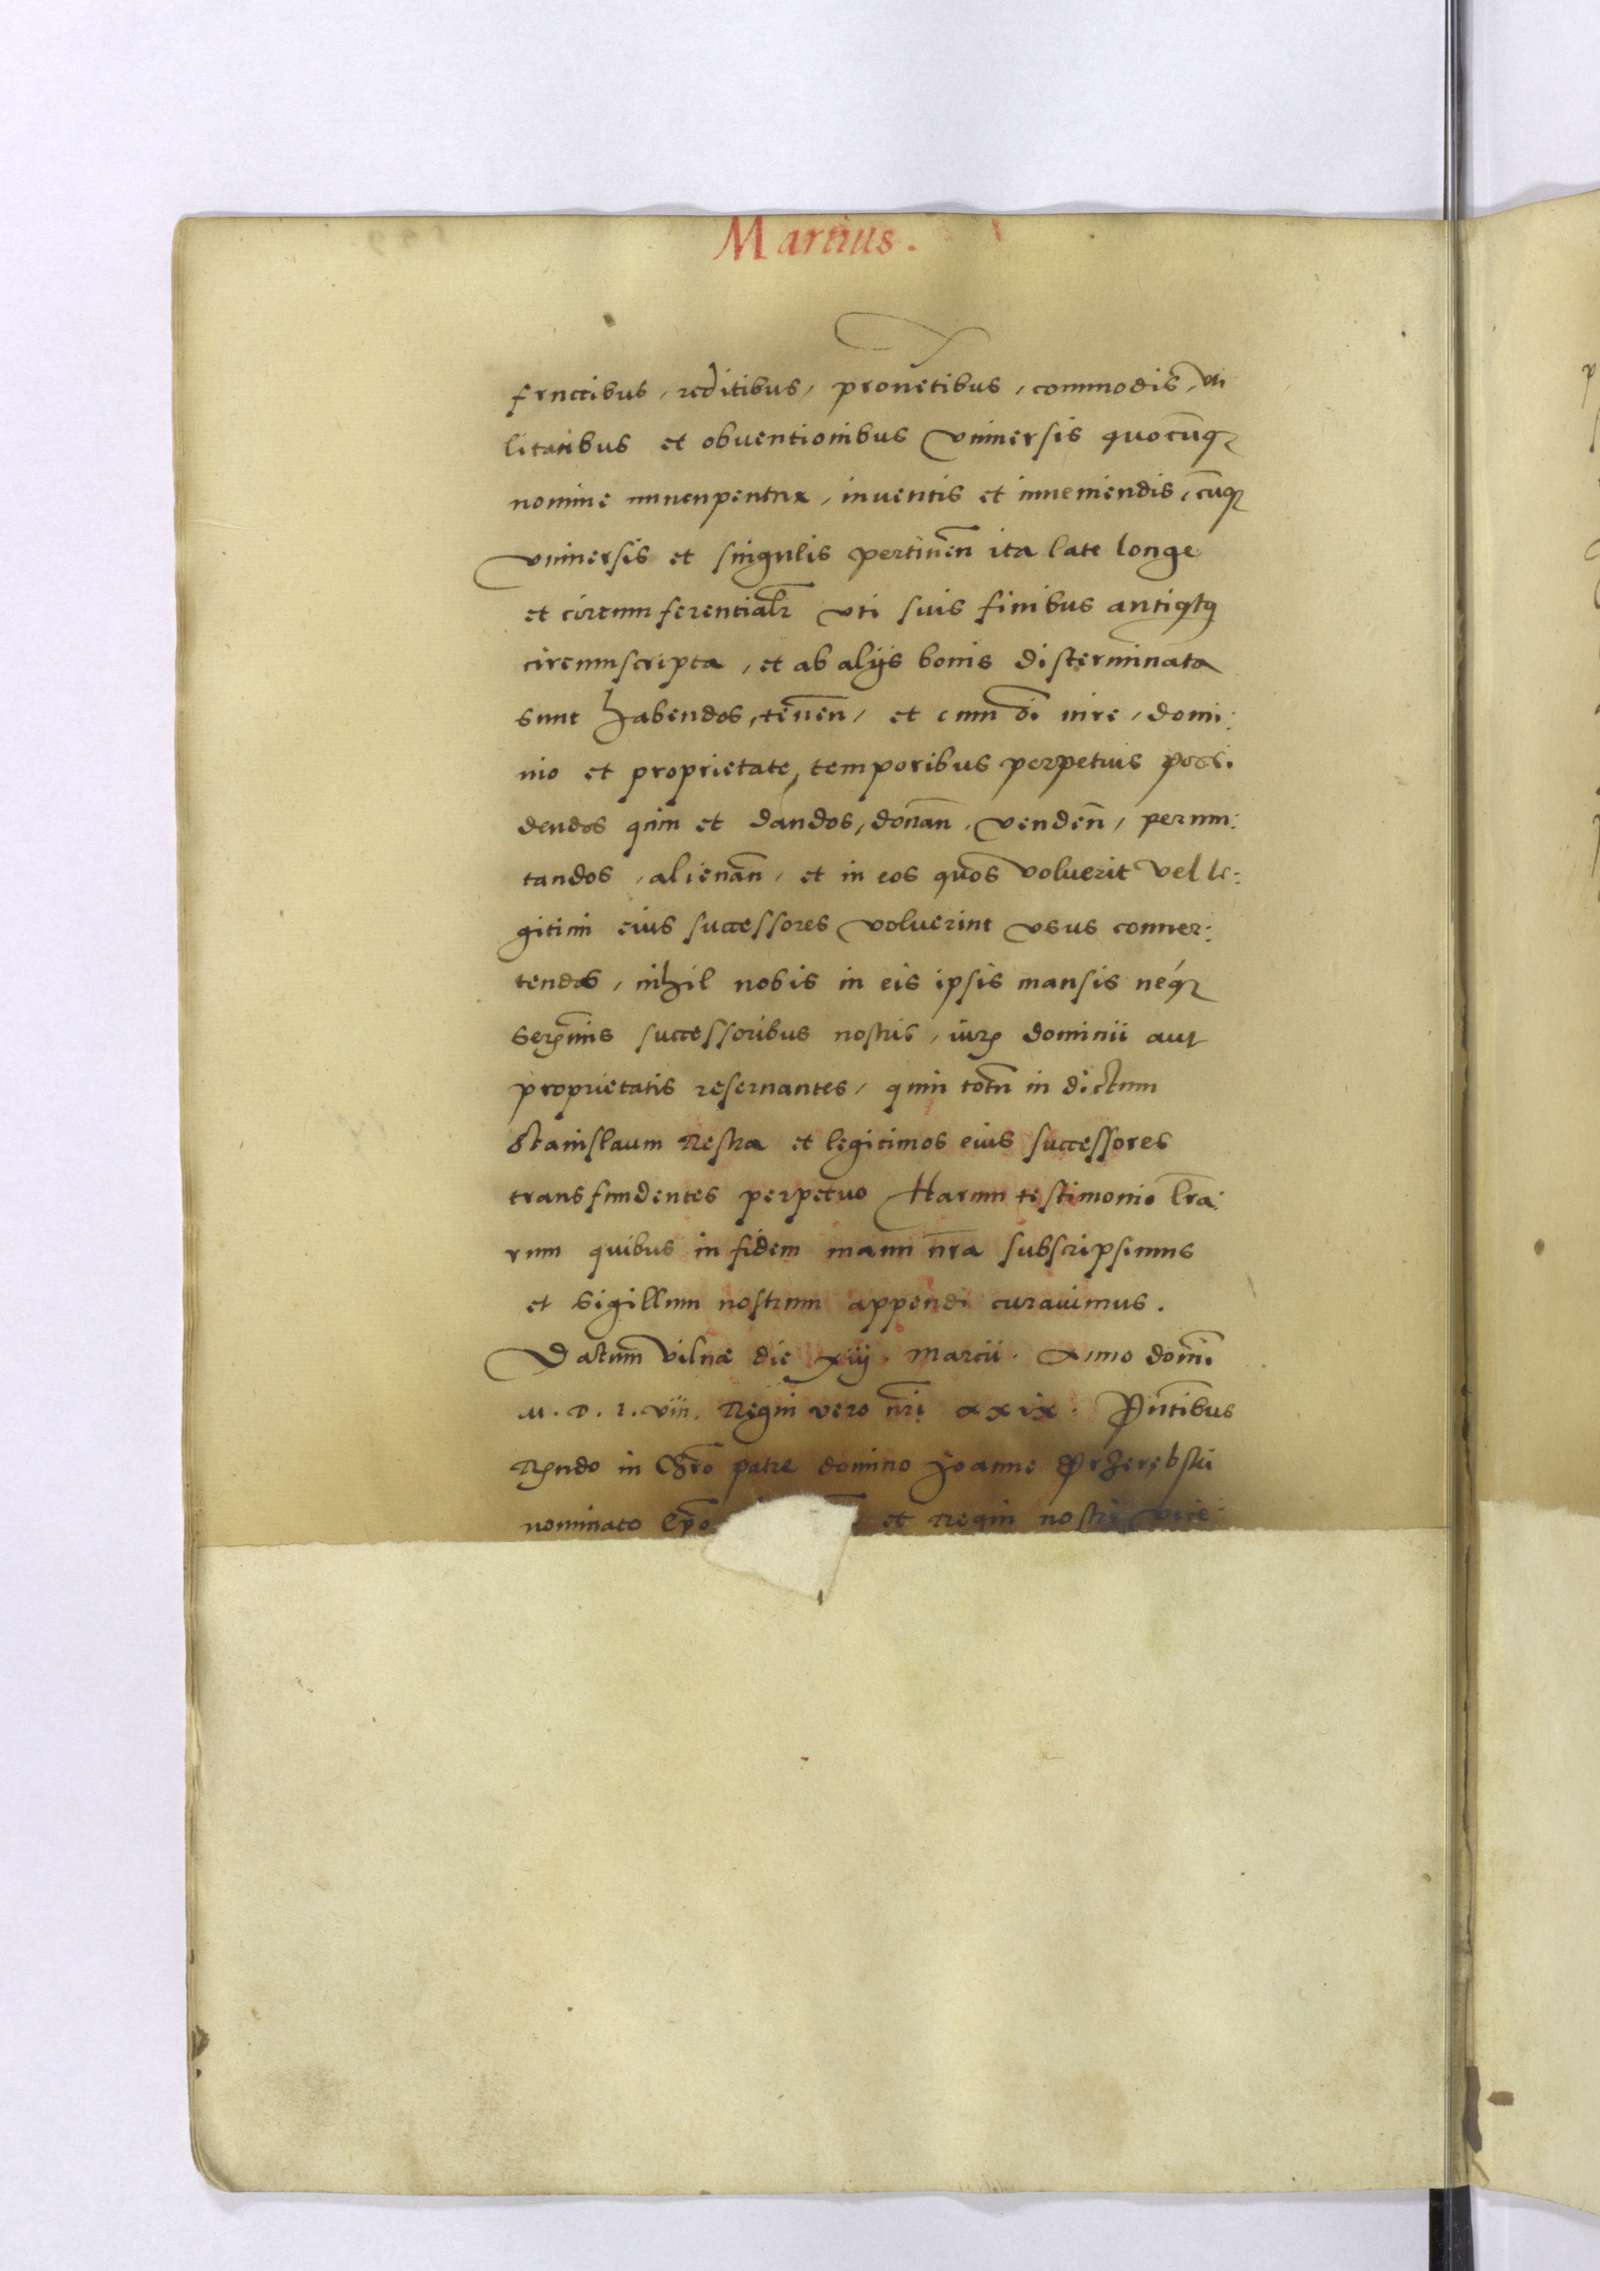 Martius.
fructibus, reditibus, prouetibus, commodis, vti
litatibus et obuentionibus Vniuersis quocūq3
nomine nuncupentur, inuentis et inueniendis, cūq3
vniuersis et singulis pertinen̄ ita late longe
et circumferentialr̄ vti suis finibus antiqtq
circumscripta, et ab alijs bonis disterminata
sunt habendos, tenen̄, et cum oī iure, domi:
nio et proprietate, temporibus perpetuis possi
dendos quin et dandos, donan̄, venden̄, permu:
tandos, alienan̄, et in eos quos voluerit vel le:
gitimi eius successores voluerint vsus conuer:
tendos, nihil nobis in eis ipsis mansis neq3
serēmis successoribus nostris, iur3 dominii aut
proprietatis reseruantes, quin totū in dictum
Stanislaum Restra et legitimos eius successores
transfundentes perpetuo Harum testimonio lr̄a:
rum quibus in fidem manu nr̄a subscripsimus
et sigillum nostrum appendi curauimus.
Datum Vilnæ die xiij. Marcii. Anno domī
M. D. l. viii. Regni vero nr̄i xxix. Pn̄tibus
Rn̄do in Chr̄o patre domino Joanne Przerębski
nominato Ep̄o et Regni nostri vice: